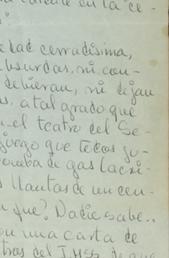 en la "ce-
"
edad cerradísima,
absurdas, ni con-
debieran, ni dejan
s, a tal grado que
n el teatro del Se-
juego que todos ju-
bomba de gas lacri-
s llantas de un cen-
n que? Nadie sabe..
on una carta de
tros del IMSS